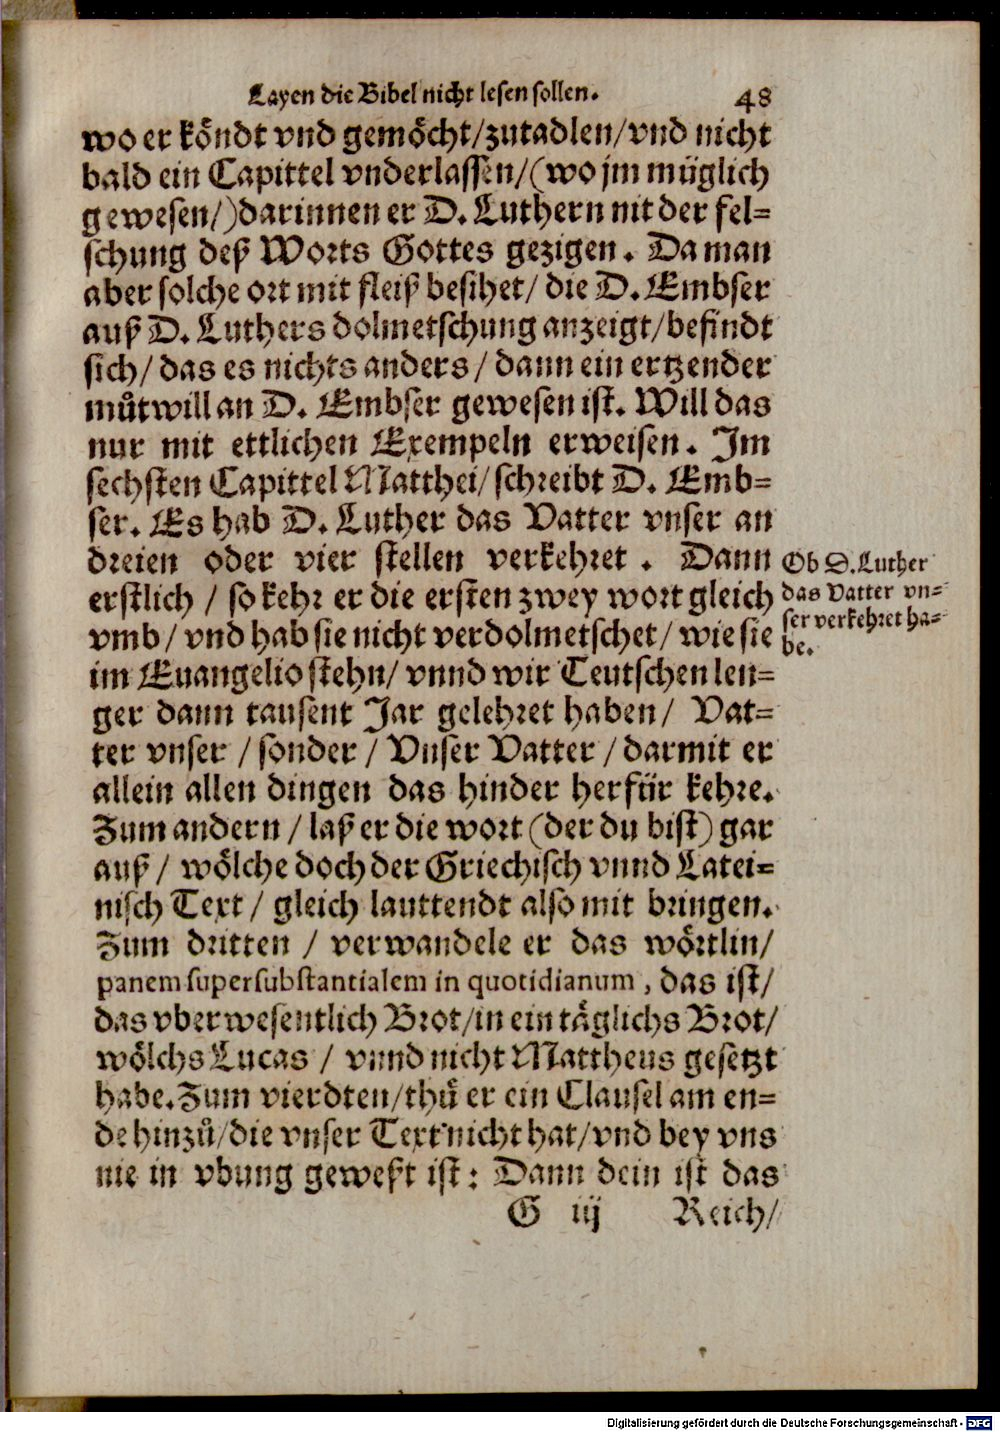 Layen die Bibel nicht lesen sollen. 48
wo er köndt vnd gemöcht/zutadlen/vnd nicht
bald ein Capittel vnderlassen/(wo jm müglich
gewesen/)darinnen er D. Luthern nit der fel=
schung deß Worts Gottes gezigen. Da man
aber solche ort mit fleiß besihet/ die D. Embser
auß D. Luthers dolmetschung anzeigt/befindt
sich/ das es nichts anders/ dann ein ertzender
můtwill an D. Embser gewesen ist. Will das
nur mit ettlichen Exempeln erweisen. Im
sechsten Capittel Matthei/ schreibt D. Emb=
ser. Es hab D. Luther das Vatter vnser an
dreien oder vier stellen verkehret. Dann
erstlich / so kehr er die ersten zwey wort gleich
vmb/ vnd hab sie nicht verdolmetschet/ wie sie
im Euangelio stehn/ vnnd wir Teutschen len=
ger dann tausent Jar gelehret haben/ Vat=
ter vnser / sonder / Vnser Vatter / darmit er
allein allen dingen das hinder herfür kehre.
Zum andern / laß er die wort (der du bist) gar
auß / wölche doch der Griechisch vnnd Latei=
nisch Text / gleich lauttendt also mit bringen.
Zum dritten / verwandele er das wörtlin/
panem supersubstantialem in quotidianum, das ist/
das vberwesentlich Brot/in ein täglichs Brot/
wölchs Lucas / vnnd nicht Mattheus gesetzt
habe. Zum vierdten/thů er ein Clausel am en=
de hinzů/die vnser Text nicht hat/vnd bey vns
nie in vbung geweßt ist: Dann dein ist das
G iij Reich/
Ob D. Luther
das Vatter vn=
ser verkehret ha=
be.
Digitalisierung gefördert durch die Deutsche Forschungsgemeinschaft - DFG